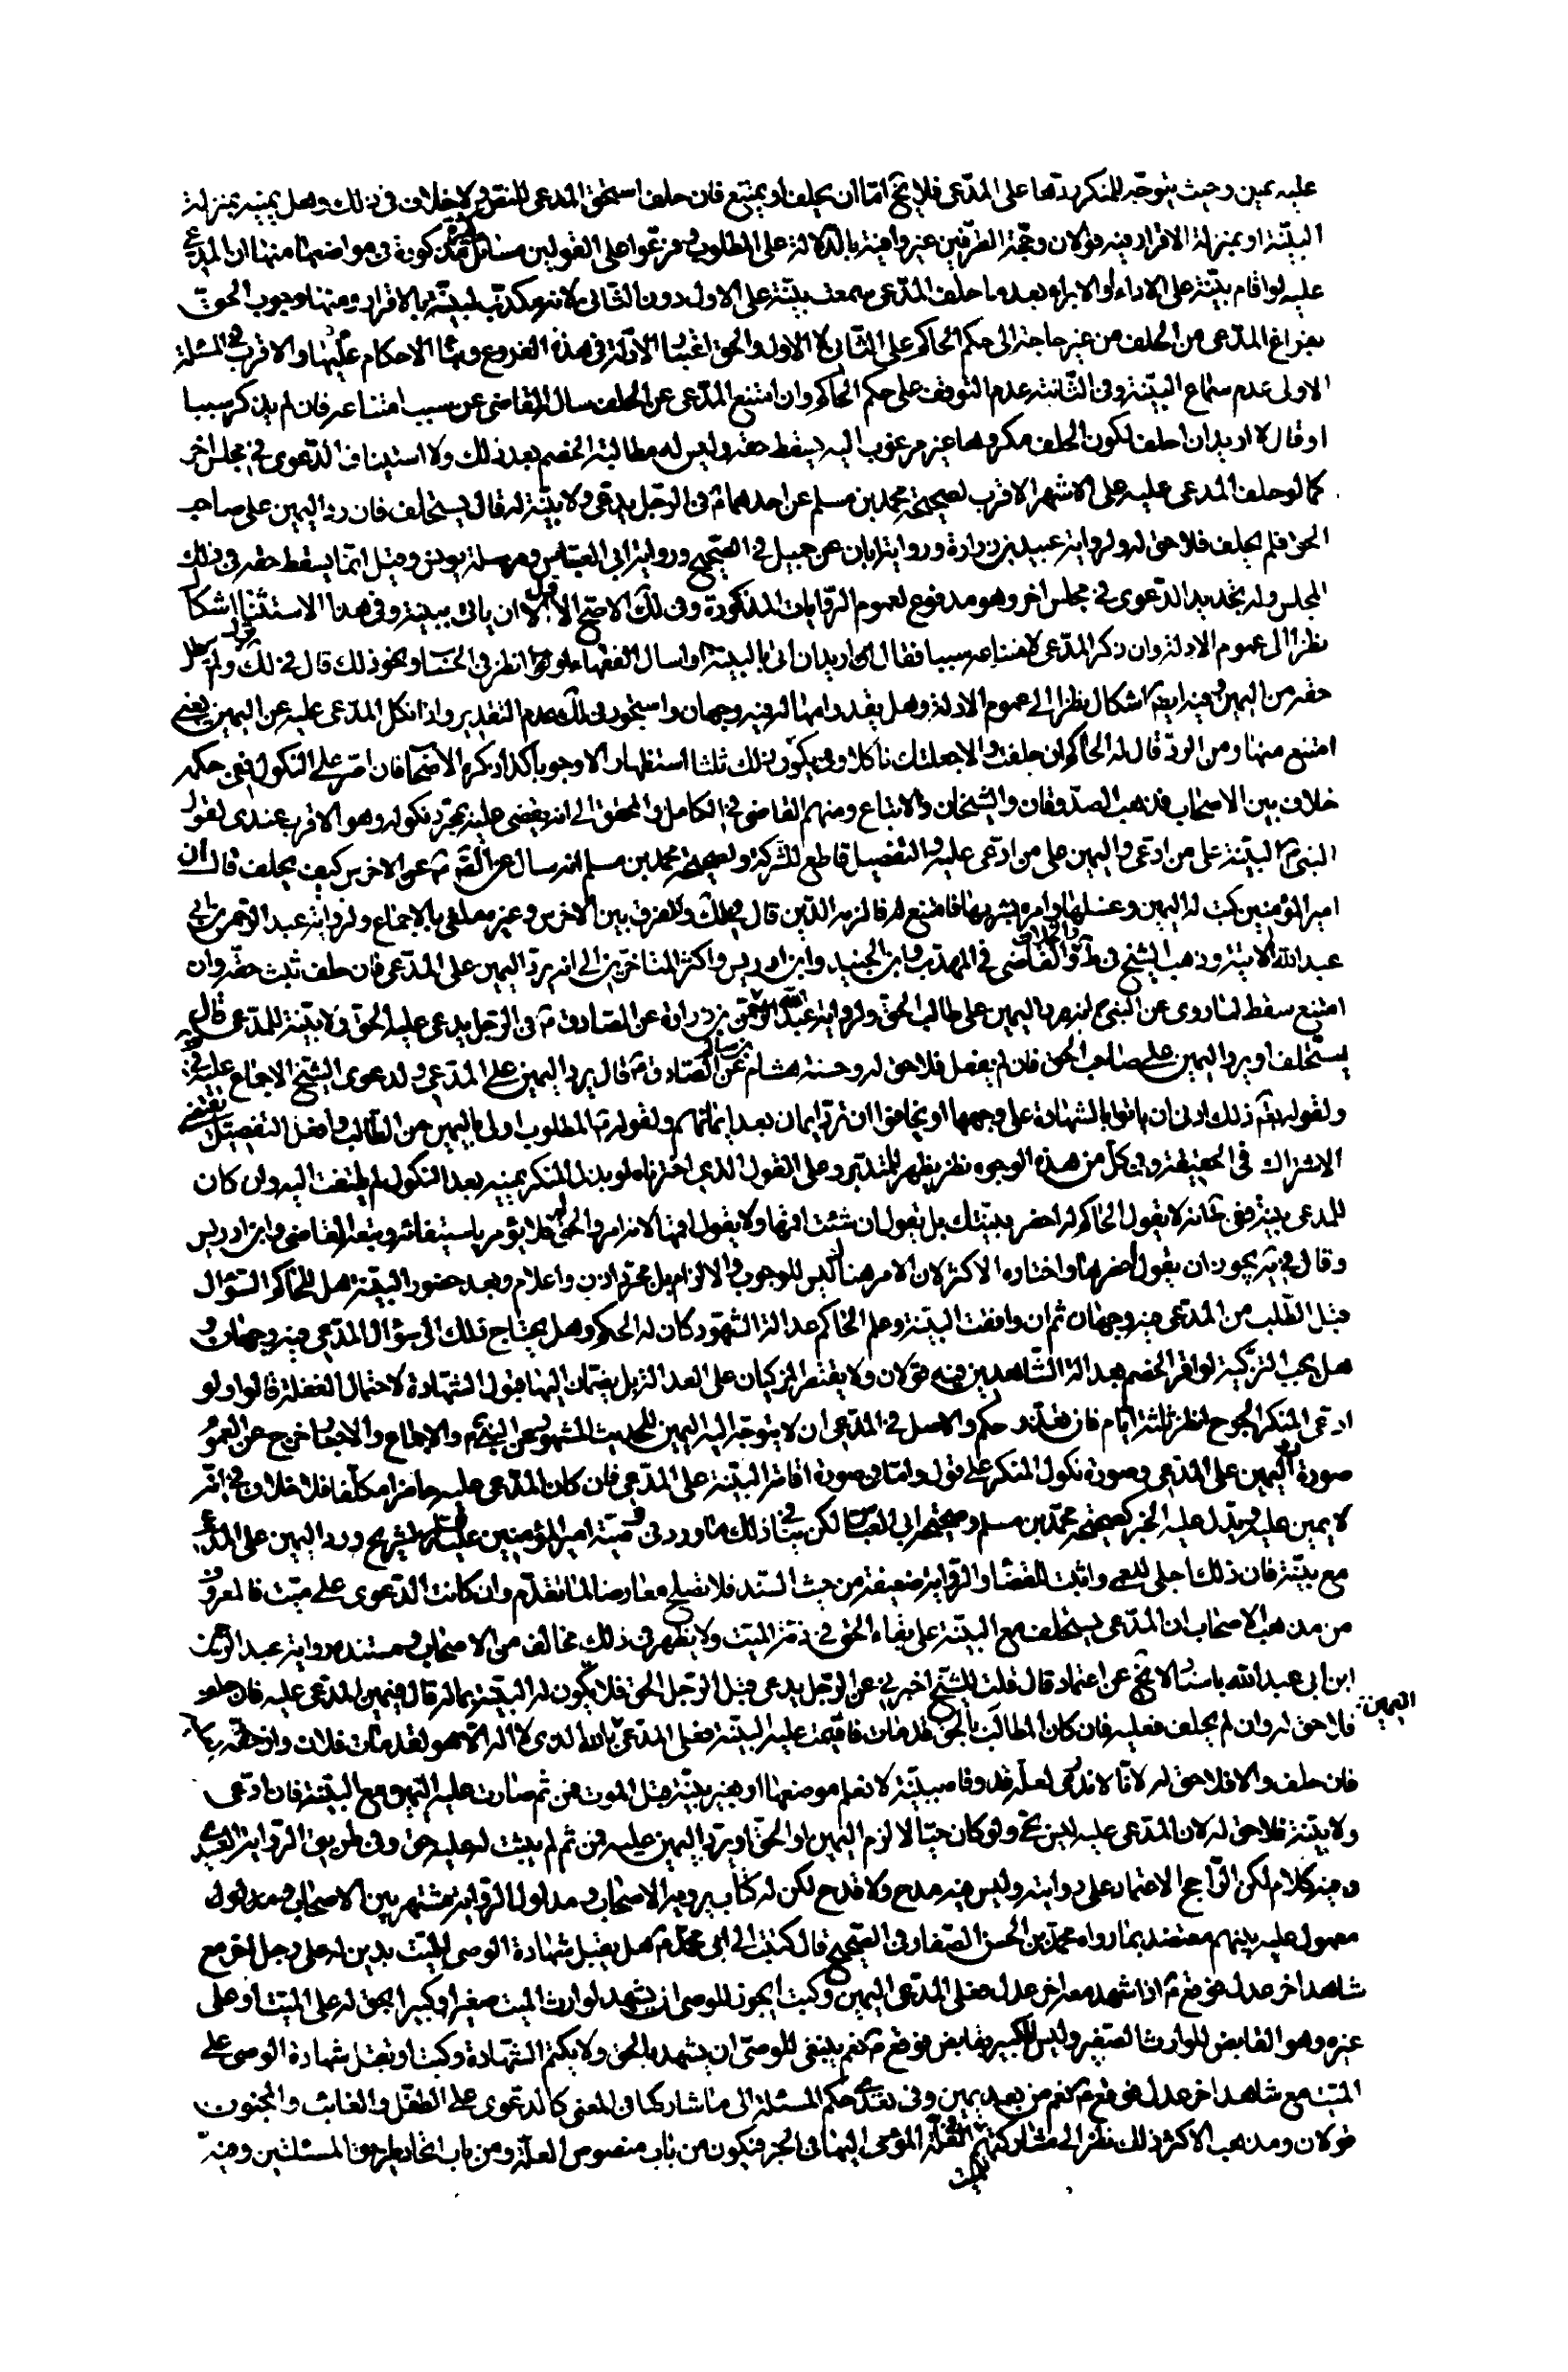 عليه يمين وحيث يتوجه للمنكر ردها على المدعى فلا يخ اما ان يحلف او يمتنع فان حلف استحق المدعى للنص ولا خلاف فى ذلك وهل يمينه بمنزلة
البينة او بمنزلة الاقرار فيه قولان وحجة الطرفين غير وافية بالدلالة على المطلوب وفرعوا على القولين مسائل مذكورة فى مواضعها منها ان المدعى
عليه لو اقام بينة على الاداء او الابراء بعد ما حلف المدعى سمعت بينته على الاول دون الثانى لانه مكذب لبينته بالاقرار ومنها وجوب الحق
بفراغ المدعى من الحلف من غير حاجة الى حكم الحاكم على الثانى لا الاول والحق اعتبار الادلة فى هذه الفروع وبناء الاحكام عليها والاقرب فى المسئلة
الاولى عدم سماع البينة وفى الثانية عدم التوقف على حكم الحاكم وان امتنع المدعى عن الحلف سال القاضى عن سبب امتناعه فان لم يذكر سببا
او قال لا اريد ان احلف لكون الحلف مكروها غير مرغوب اليه يسقط حقه وليس له مطالبة الخصم بعد ذلك ولا استيناف الدعوى فى مجلس اخر
كما لو حلف المدعى عليه على الاشهر الاقرب لصحيحة محمد بن مسلم عن احدهما ع فى الرجل يدعى ولا بينة له قال يستحلفه فان رد اليمين على صاحب
الحق فلم يحلف فلا حق له ولرواية عبيد بن زرارة ورواية ابان عن جميل فى الصحيح ورواية ابى العباس ومرسلة يونس وقيل انما يسقط حقه فى ذلك
المجلس وله تجديد الدعوى فى مجلس اخر وهو مدفوع لعموم الروايات المذكورة وفى لك الاصح الاول الا ان ياتى ببينة وفى هذا الاستثناء اشكال
نظرا الى عموم الادلة وان ذكر المدعى لامتناعه سببا فقال اى اريد ان اتى بالبينة او اسال الفقهاء او انظر فى الحساب ونحو ذلك قال فى لك ولم يبطل
حقه من اليمين وفيه ايضا اشكال نظرا الى عموم الادلة وهل يقدر امهاله فيه وجهان واستجود فى لك عدم التقدير واذا نكل المدعى عليه عن اليمين يعنى
امتنع منها ومن الرد قال له الحاكم ان حلفت والا جعلتك ناكلا ويكرر ذلك ثلثا استظهارا لا وجوبا كذا ذكره الاصحاب فان اصر على النكول ففى حكمه
خلاف بين الاصحاب فذهب الصدوقان والشيخان والاتباع ومنهم القاضى فى الكامل والمحقق الى انه يقضى عليه بمجرد نكوله وهو الاقرب عندى لقول
النبى ص البينة على من ادعى واليمين على من ادعى عليه والتفصيل قاطع للشركة ولصحيحة محمد بن مسلم انه سال عن الصادق ع عن الاخرس كيف يحلف قال ان
امير المؤمنين كتب له اليمين وغسلها وامره بشربها فامتنع فالزمه الدين قال فى لك والفرق بين الاخرس وغيره ملغى بالاجماع ولرواية عبد الرحمن بن ابى
عبد الله الاتية وذهب الشيخ فى ط والخلاف والقاضى فى المهذب وابن الجنيد وابن ادريس واكثر المتاخرين الى انه يرد اليمين على المدعى فان حلف ثبت حقه وان
امتنع سقط لما روى عن النبى ص انه رد اليمين على طالب الحق ولرواية عبيد بن زرارة عن الصادق ع فى الرجل يدعى عليه الحق ولا بينة للمدعى قال
يستحلف او يرد اليمين على صاحب الحق فان لم يفعل فلا حق له وحسنة هشام بن سالم عن الصادق ع قال يرد اليمين على المدعى ولدعوى الشيخ الاجماع عليه فى ف
ولقوله تعم ذلك ادنى ان ياتوا بالشهادة على وجهها او يخافوا ان ترد ايمان بعد ايمانهم ولقوله ص المطلوب اولى باليمين من الطالب وافعل التفضيل يقتضى
الاشتراك فى الحقيقة وفى كل من هذه الوجوه نظر يظهر للمتدبر وعلى القول الذى اخترناه لو بذل المنكر يمينه بعد النكول لم يلتفت اليه وان كان
للمدعى بينة ففى جماعة لا يقول الحاكم له احضر بينتك بل يقول ان شئت اقمها ولا يقول اقمها لانه امر والحق له فلا يؤمر باستيفائه وتبعه القاضى وابن ادريس
وقال فى ير يجوز ان يقول احضرها واختاره الاكثر لان الامر هنا ليس للوجوب والالزام بل مجرد اذن واعلام وبعد حضور البينة هل للحاكم السؤال
قبل الطلب من المدعى فيه وجهان ثم ان وافقت البينة وعلم الحاكم عدالة الشهود كان له الحكم وهل يحتاج ذلك الى سؤال المدعى فيه وجهان و
هل يجب التزكية لو اقر الخصم بعدالة الشاهدين فيه قولان ولا يقتصر المزكيان على العدالة بل يضمان اليها قبول الشهادة لاحتمال الغفلة قالوا ولو
ادعى المنكر الجرح انظر ثلثة ايام فان تعذر حكم والاصل فى المدعى ان لا يتوجه اليه اليمين للحديث المشهور عن النبى ص والاجماع والاخبار خرج عن العموم
صورة رد اليمين على المدعى وصورة نكول المنكر على قول واما فى صورة اقامة البينة على المدعى فان كان المدعى عليه حاضرا مكلفا فلا خلاف فى انه
لا يمين عليه ويدل عليه الخبر كصحيحة محمد بن مسلم وصحيحة ابى العباس لكن ينافى ذلك ما ورد فى وصية امير المؤمنين عليه السلام لشريح ورد اليمين على المدعى
مع بينته فان ذلك اجلى للعمى واثبت للقضاء والرواية ضعيفة من حيث السند فلا تصلح معارضا لما تقدم وان كانت الدعوى على ميت فالمعروف
من مذهب الاصحاب ان المدعى يستحلف مع البينة على بقاء الحق فى ذمة الميت ولا يظهر فى ذلك مخالف من الاصحاب ومستنده رواية عبد الرحمن
ابن ابى عبد الله باسناد لا يخ عن اعتماد قال قلت للشيخ اخبرنى عن الرجل يدعى قبل الرجل الحق فلا يكون له البينة بماله قال فيمين المدعى عليه فان حلف
اليمين
فلا حق له وان لم يحلف فعليه فان كان المطالب بالحق قد مات فاقيمت عليه البينة فعلى المدعى بالله الذى لا اله الا هو لقد مات فلان وان حقه عليه
فان حلف والا فلا حق له لانا لا ندرى لعله قد وفاه ببينة لا نعلم موضعها او بغير بينة قبل الموت فمن ثم صارت عليه اليمين مع البينة فان ادعى
ولا بينة فلا حق له لان المدعى عليه ليس بحى ولو كان حيا لالزم اليمين او الحق او يرد اليمين عليه فمن ثم لم يثبت له عليه حق وفى طريق الرواية العبيدى
وفيه كلام لكن الراجح الاعتماد على روايته وليس فيه مدح ولا قدح لكن له كتاب يرويه الاصحاب ومدلول الرواية مشتهر بين الاصحاب ومدلول
معمول عليه بينهم معتضد بما رواه محمد بن الحسن الصفار فى الصحيح قال كتبت الى ابى محمد ع هل يقبل شهادة الوصى للميت بدين له على رجل اخر مع
شاهد اخر عدل فوقع ع اذا شهد معه اخر عدل فعلى المدعى اليمين وكتب ايجوز للوصى ان يشهد لوارث الميت صغيرا وكبيرا بحق له على الميت او على
غيره وهو القابض للوارث الصغير وليس للكبير بقابض فوقع ع نعم ينبغى للوصى ان يشهد بالحق ولا يكتم الشهادة وكتب او تقبل شهادة الوصى على
الميت مع شاهد اخر عدل فوقع ع نعم من بعد يمين وفى تعدى حكم المسئلة الى ما شاركها فى المعنى كالدعوى على الطفل والغائب والمجنون
قولان ومذهب الاكثر ذلك نظرا الى مشاركتهم للميت فى العلة المومى اليها فى الخبر فيكون من باب منصوص العلة ومن باب اتحاد طريق المسئلتين وفيه